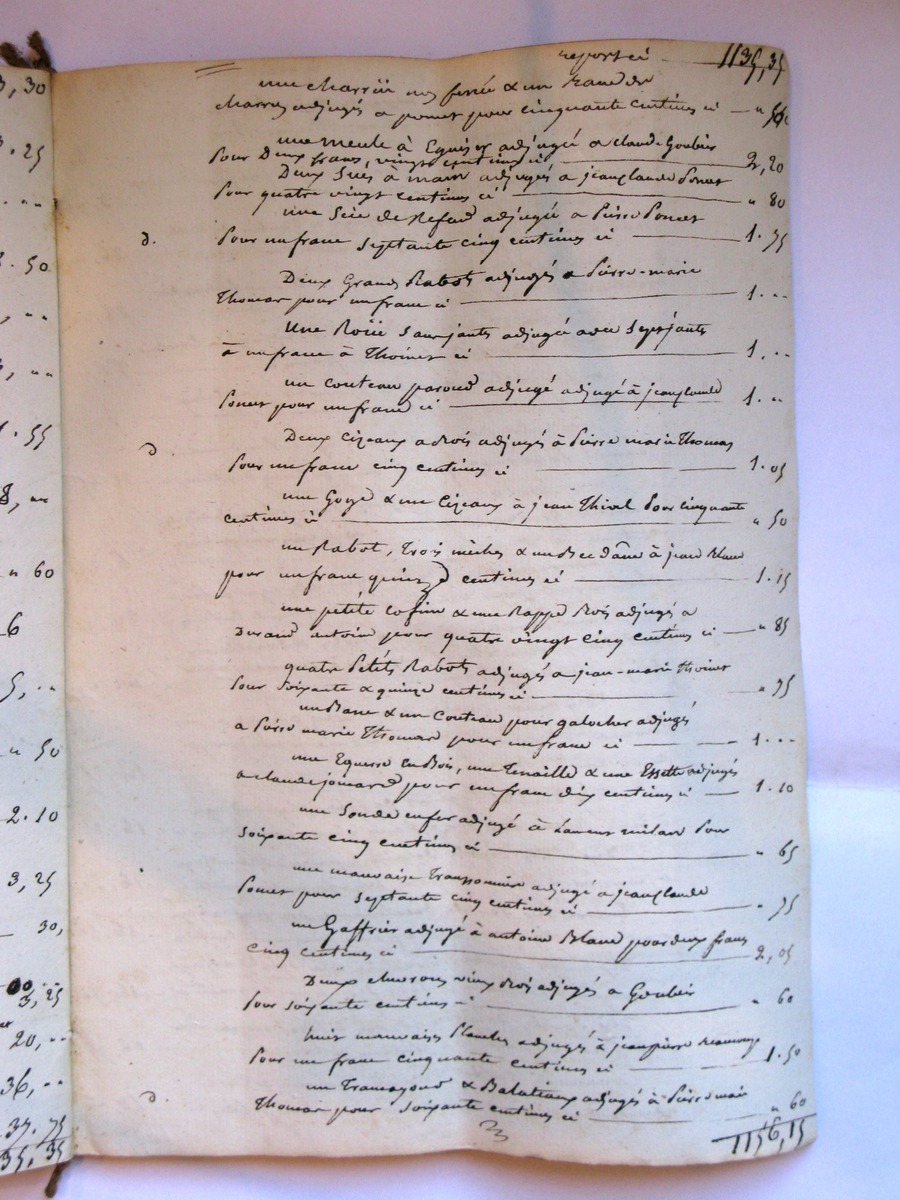 3, 30
3. 25
. . .
. 50
, ..
, ..
1. 55
8, ..
" 60
6
5, ..
" 50
2. 10
3, 25
30,
00. ..
3, 25
20, ..
36, ..
37. 75
35, 35
report ci 1135,35
une charrüe non ferrée & un
charrue adjugés a poncet pour cinquante centimes ci " 50
une meule à Eguiser adjugée a claude Goubier
Pour Deux francs, vingt centimes ci 2, 20
Deux Scies à main adjugés a jeanclaude Poncet
Pour quatre vingt centimes ci " 80
une Scie de Refand adjugée a Pierre Poncet
d. Pour un franc Septante cinq centimes ci 1. 75
Deux Grands Rabots adjugés a Pierre-marie
Thomas pour un franc ci 1. ..
Une Roüe Sans jants adjugée avec Sept jants
à un franc à Thoinet ci 1. ..
un couteau paroud adjugé adjugé à jeanclaude
Poncet pour un franc ci 1. ..
d Deux cizeaux a Bois adjugés à Pierre marie Thomas
Pour un franc cinq centimes ci 1. 05
une Gouge & une Cizeaux à jean Thival Pour cinquante
centimes ci " 50
un Rabot, Trois mèches & un Bec Dâne à jean Blanc
pour un franc quinze centimes ci 1. 15
une petite cofine & une Rappe Bois adjugés a
Durand antoine pour quatre vingt cinq centimes ci " 85
quatre Petits Rabots adjugés a jean-marie Thoinet
Pour Soixante & quinze centimes ci " 75
un Banc & un Couteau pour galocher adjugés
a Pierre marie Thomas pour un franc ci 1. ..
une Equerre En Bois, une Tenaille & une Essette adjugés
a claude jomard pour un franc dix centimes ci 1. 10
une Sonde en fer adjugé à Laurent milan Pour
Soixante cinq centimes ci " 65
une mauvaise adjugé a jeanclaude
Poncet pour Septante cinq centimes ci " 75
un Gaffrier adjugé à antoine Blanc pour deux francs
cinq centimes ci 2, 05
Deux chevrons vieux Bois adjugés a Goubier
Pour soixante centimes " 60
huit mauvaises Planches adjugés à jeanpierre
Pour un franc cinquante centimes ci 1. 50
d. un & adjugés à Pierre marie
Thomas pour Soixante centimes ci " 60
1156,15